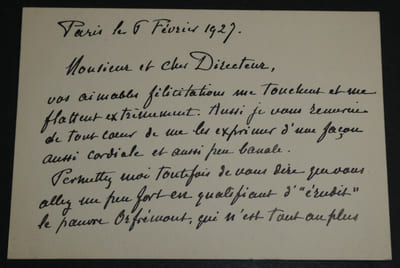 Paris le 6 Février 1927.
Monsieur et cher Directeur,
vos aimables félicitations me touchent et me
flattent extrêmement. Aussi je vous remercie
de tout cœur de me les exprimer d'une façon
aussi cordiale et aussi peu banale.
Permettez moi toutefois de vous dire que vous
allez un peu fort en qualifiant d'"érudit"
le pauvre Orfrémont, qui n'est tout au plus